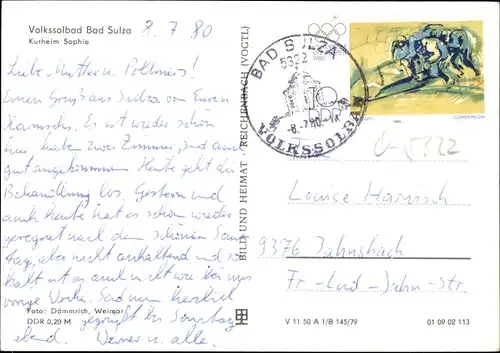 Volkssolbad Bad Sulza
Kurheim Sophie
8.7.80
Liebe Mutter u.
Einen Gruß aus Sulza von Euren
Es ist wieder schön
hier, haben zwei Zimmer, sind auch
gut angekommen. Heute geht die
Behandlung los. Gestern und
auch heute hat es schon wieder
geregnet nach dem schönen Sonn-
tag, aber nicht anhaltend und so
kalt ist es auch nicht wie bei uns
vorige Woche. Seid nun herzlich
gegrüßt bis Sonntag
abend. Werner u. alle.
Foto: Dömmrich, Weimar
DDR 0,20 M
BILD UND HEIMAT · REICHENBACH (VOGTL)
BAD SULZA
5322
10
DDR
-8.-7.80.
VOLKSSOLBAD
1980
O-5322
Louise Hainisch
9376 Jahnsbach
Fr.-Lud.-Jahn-Str.
V 11 50 A 1/B 145/79
01 09 02 113